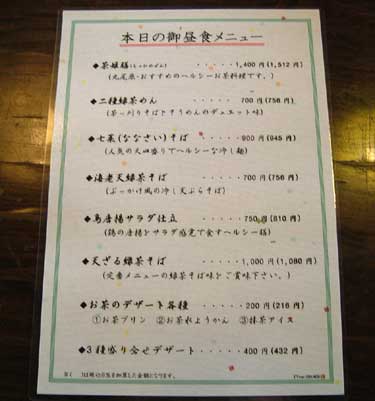 本日の御昼食メニュー
◆茶姫膳(ちゃひめぜん)・・・・・1,400円(1,512円)
(丸尾原・おすすめのヘルシーお茶料理です。)
◆二種緑茶めん ・・・・・700円(756円)
(茶っ刈りそばとそうめんのデュエット味)
◆七菜(ななさい)そば ・・・・・900円(945円)
(人気の大皿盛りでヘルシーな冷し麺)
◆海老天緑茶そば ・・・・・700円(756円)
(ぶっかけ風の冷し天ぷらそば)
◆鳥唐揚サラダ仕立 ・・・・・750円(810円)
(鶏の唐揚をサラダ感覚で食すヘルシー膳)
◆天ざる緑茶そば ・・・・・1,000円(1,080円)
(定番メニューの緑茶そば味をご賞味下さい。)
◆お茶のデザート各種 ・・・・・200円(216円)
①お茶プリン ②お茶水ようかん ③抹茶アイス
◆3種盛り合せデザート ・・・・・400円(432円)